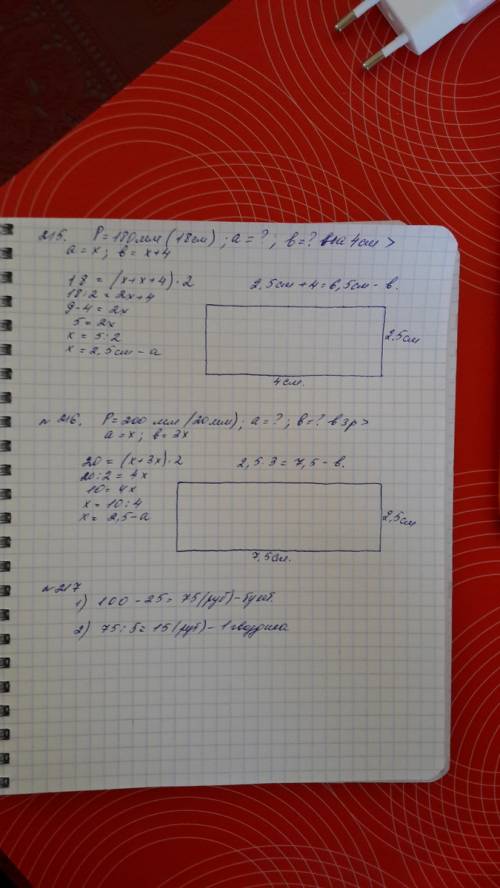 215. P=180мм (18см); a=?; в=? вна 4см >
a=x; в=x+4
18 = (x+x+4)·2
18:2=2x+4
9-4=2x
5=2x
x=5:2
x=2,5см-a
2,5см+4=6,5см-в.
2,5см
4см.
№216. P=200 мм (20мм); a=?; в=? в3р>
a=x; в=3x
20=(x+3x)·2
20:2=4x
10=4x
x=10:4
x=2,5-a
2,5·3=7,5-в.
2,5см
7,5см.
№217
1) 100-25=75(руб)-букет.
2) 75:5=15(руб)-1 гвоздика